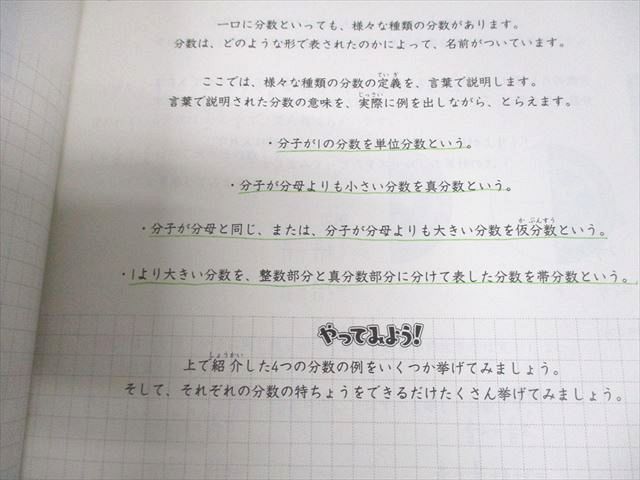 一口に分数といっても、様々な種類の分数があります。
分数は、どのような形で表されたのかによって、名前がついています。
ここでは、様々な種類の分数の定義を、言葉で説明します。
言葉で説明された分数の意味を、実際に例を出しながら、とらえます。
・分子が1の分数を単位分数という。
・分子が分母よりも小さい分数を真分数という。
・分子が分母と同じ、または、分子が分母よりも大きい分数を仮分数という。
・1より大きい分数を、整数部分と真分数部分に分けて表した分数を帯分数という。
やってみよう!
上で紹介した4つの分数の例をいくつか挙げてみましょう。
そして、それぞれの分数の特ちょうをできるだけたくさん挙げてみましょう。